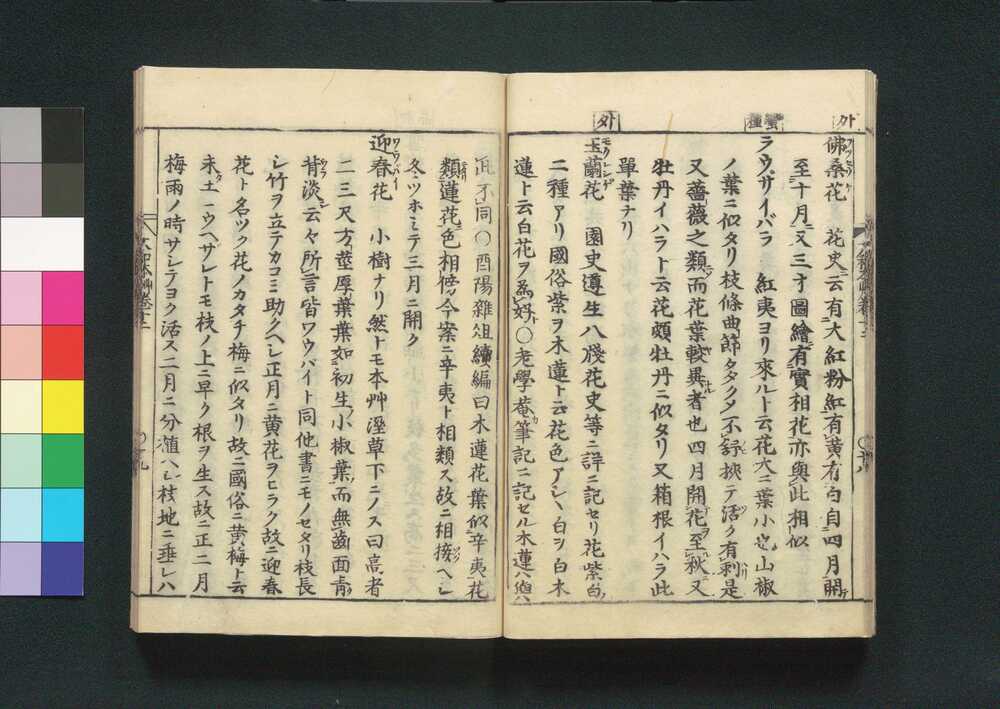 外
佛桑花 花史ニ云有大紅粉紅有黄有白自四月開
至十月又三才圖繪有實相花亦與此相似
蠻種
ラウザイバラ 紅夷ヨリ來ルト云花大ニ葉小也山椒
ノ葉ニ似タリ枝條曲節タヽクメ不舒挾テ活ク有刺是
又薔薇之類而花葉較異者也四月開花至秋又
牡丹イハラト云花頗牡丹ニ似タリ又箱根イハラ此
單葉ナリ
外
玉蘭花 園史遵生八牋花史等ニ詳ニ記セリ花紫白
二種アリ國俗紫ヲ木蓮ト云花色アシヽ白ヲ白木
蓮ト云白花ヲ為好○老學菴筆記ニ記セル木蓮ハ
不同○酉陽雜俎續編曰木蓮花葉似辛夷花
類蓮花色相傍今案ニ辛夷ト相類ス故ニ相接ヘシ
冬ツホミテ三月ニ開ク
迎春花 小樹ナリ然トモ本艸溼草下ニノス曰高者
二三尺方莖厚葉葉如初生小椒葉而無齒面青
背淡云々所言皆ワウバイト同他書ニモノセタリ枝長
シ竹ヲ立テカコミ助クヘシ正月ニ黄花ヲヒラク故ニ迎春
花ト名ツク花ノカタチ梅ニ似タリ故ニ國俗ニ黄梅ト云
未土ニウヘザレトモ枝ノ上ニ早ク根ヲ生ス故ニ正二月
梅雨ノ時サシテヨク活ス二月ニ分殖ヘシ枝地ニ垂レハ